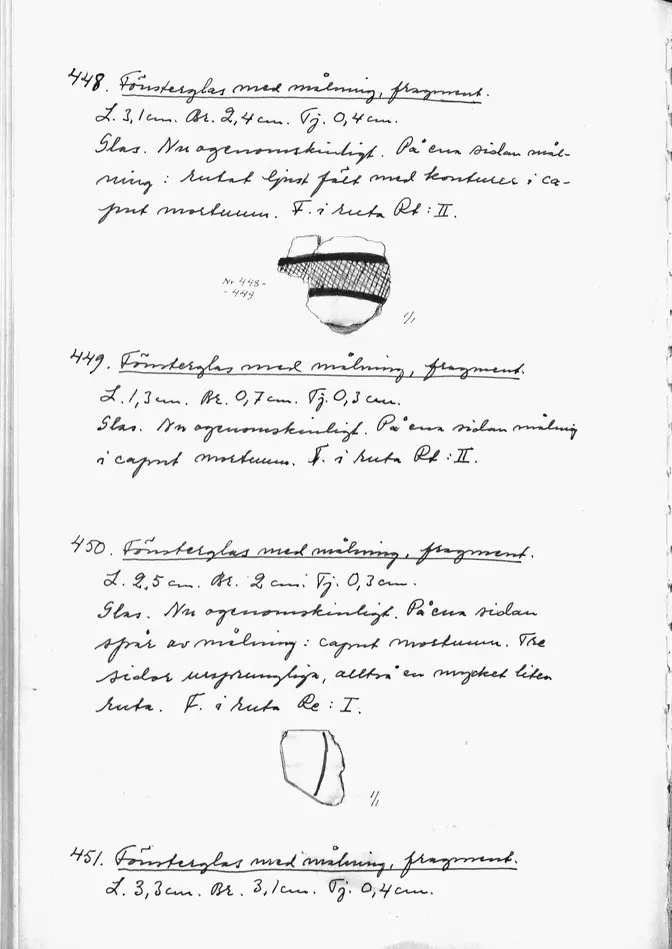 448. Fönsterglas med målning, fragment.
L. 3,1 cm. Br. 2,4 cm. Tj. 0,4 cm.
Glas. Nu ogenomskinligt. På ena sidan mål-
ning : rutat ljust fält med konturer i ca-
put mortuum. F. i ruta Rt : II.
Nr 448-
- 449
1/1
449. Fönsterglas med målning, fragment.
L. 1,3 cm. Br. 0,7 cm. Tj. 0,3 cm.
Glas. Nu ogenomskinligt. På ena sidan målning
i caput mortuum. F. i ruta Rt : II.
450. Fönsterglas med målning, fragment.
L. 2,5 cm. Br. 2 cm. Tj. 0,3 cm.
Glas. Nu ogenomskinligt. På ena sidan
spår av målning : caput mortuum. Tre
sidor ursprungliga, alltså en mycket liten
ruta. F. i ruta Re : I.
1/1
451. Fönsterglas med målning, fragment.
L. 3,3 cm. Br. 3,1 cm. Tj. 0,4 cm.